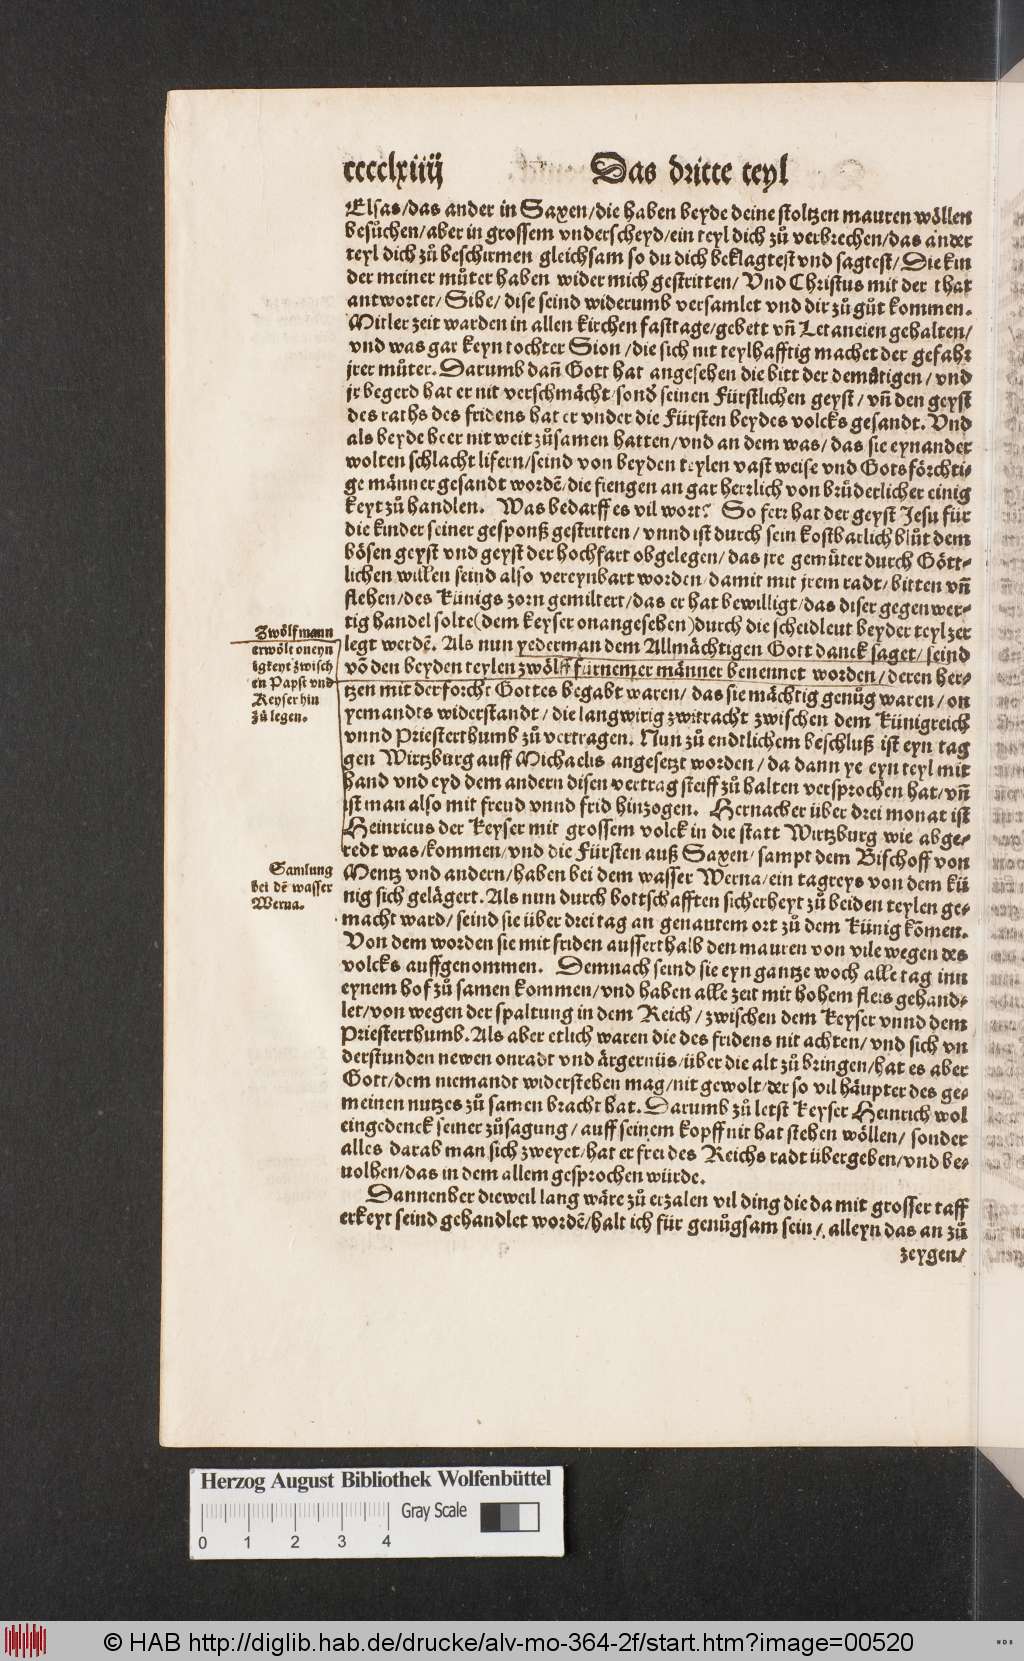 cccclxiiij Das dritte teyl
Elsas/das ander in Saxen/die haben beyde deine stoltzen mauren wöllen
besůchen/aber in grossem vnderscheyd/ein teyl dich zů verbrechen/das ander
teyl dich zů beschirmen gleichsam so du dich beklagtest vnd sagtest/Die kin
der meiner můter haben wider mich gestritten/ Vnd Christus mit der that
antwortet/ Sihe/ dise seind widerumb versamlet vnd dir zů gůt kommen.
Mitler zeit warden in allen kirchen fasttage/gebett vñ Letaneien gehalten/
vnd was gar keyn tochter Sion/die sich nit teylhafftig machet der gefahr
jrer můter. Darumb dañ Gott hat angesehen die bitt der demůtigen/ vnd
jr begerd hat er nit verschmächt/sonð seinen Fürstlichen geyst/ vñ den geyst
des raths des fridens hat er vnder die Fürsten beydes volcks gesandt. Vnd
als beyde heer nit weit zůsamen hatten/vnd an dem was/ das sie eynander
wolten schlacht lifern/seind von beyden teylen vast weise vnd Gotsförchti-
ge männer gesandt wordẽ/die fiengen an gar herrlich von brůderlicher einig
keyt zů handlen. Was bedarff es vil wort? So ferr hat der geyst Jesu für
die kinder seiner gesponß gestritten/ vnnd ist durch sein kostbarlich blůt dem
bösen geyst vnd geyst der hochfart obgelegen/das jre gemůter durch Gött-
lichen willen seind also vereynbart worden/damit mit jrem radt/bitten vñ
flehen/des Künigs zorn gemiltert/das er hat bewilligt/das diser gegenwer-
tig handel solte(dem keyser onangesehen)durch die scheidleut beyder teyl zer
legt werdẽ. Als nun yederman dem Allmächtigen Gott danck saget/ seind
võ den beyden teylen zwölff fürnemer männer benennet worden/deren her-
tzen mit der forcht Gottes begabt waren/ das sie mächtig genůg waren/ on
yemandts widerstandt/die langwirig zwitracht zwischen dem Künigreich
vnnd Priesterthumb zů vertragen. Nun zů endtlichem beschluß ist eyn tag
gen Wirtzburg auff Michaelis angesetzt worden/da dann ye eyn teyl mit
hand vnd eyd dem andern disen vertrag steiff zů halten versprochen hat/vñ
ist man also mit freud vnnd frid hinzogen. Hernacher über drei monat ist
Heinricus der Keyser mit grossem volck in die statt Wirtzburg wie abge-
redt was/kommen/vnd die Fürsten auß Saxen/ sampt dem Bischoff von
Mentz vnd andern/haben bei dem wasser Werna/ein tagreys von dem kü
nig sich gelägert. Als nun durch bottschafften sicherheyt zů beiden teylen ge-
macht ward/ seind sie über drei tag an genantem ort zů dem Künig kõmen.
Von dem worden sie mit friden ausserthalb den mauren von vile wegen des
volcks auffgenommen. Demnach seind sie eyn gantze woch alle tag inn
eynem hof zů samen kommen/vnd haben alle zeit mit hohem fleis gehand-
let/von wegen der spaltung in dem Reich/zwischen dem Keyser vnnd dem
Priesterthumb. Als aber etlich waren die des fridens nit achten/ vnd sich vn
derstunden newen onradt vnd ärgernüs/über die alt zů bringen/hat es aber
Gott/dem niemandt widerstehen mag/nit gewolt/der so vil häupter des ge-
meinen nutzes zů samen bracht hat. Darumb zů letst Keyser Heinrich wol
eingedenck seiner zůsagung/auff seinem kopff nit hat stehen wöllen/ sonder
alles darab man sich zweyet/hat er frei des Reichs radt übergeben/vnd be-
uolhen/das in dem allem gesprochen würde.
Dannenher dieweil lang wäre zů erzalen vil ding die da mit grosser taff
erkeyt seind gehandlet wordẽ/halt ich für genůgsam sein/ alleyn das an zů
zeygen/
Zwölf mann
erwölt oneyn
igkeyt zwisch
en Papst vnd
Keyser hin
zů legen.
Samlung
bei dẽ wasser
Werna.
Herzog August Bibliothek Wolfenbüttel
0 1 2 3 4 Gray Scale
© HAB http://diglib.hab.de/drucke/alv-mo-364-2f/start.htm?image=00520